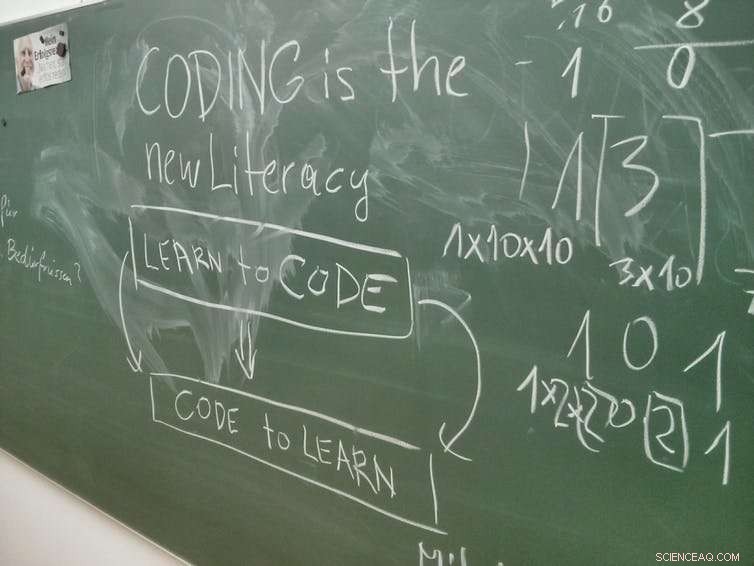 CODING is the
new Literacy
LEARN to CODE
CODE to LEARN
für
Bedürfnissen?
16 8
- 1 0
1 1 3
1x10x10
3x10
1 0 1
1x2x2 0 2 1
SCIENCEAQ.COM